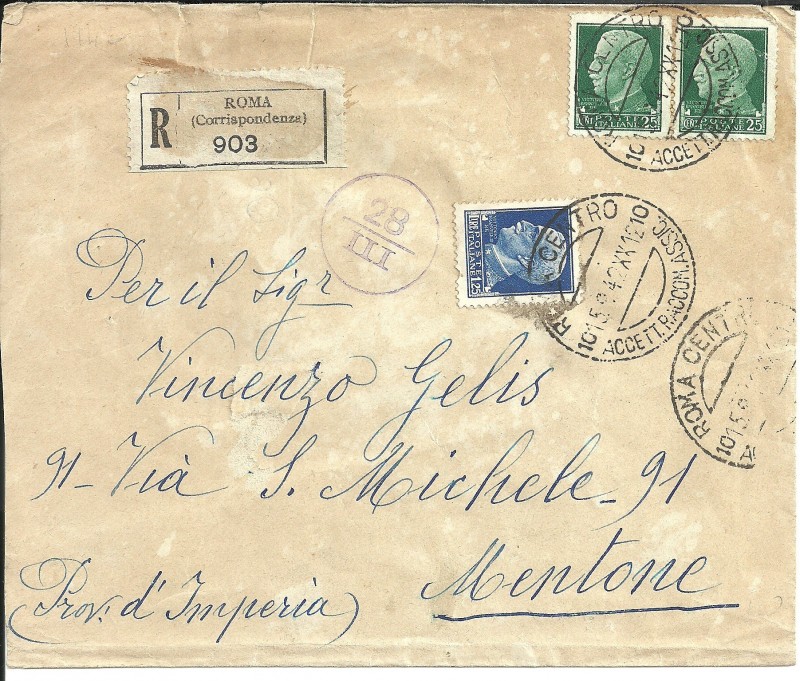 ROMA
(Corrispondenza)
R
903
28
III
POSTE
ITALIANE
25
POSTE
ITALIANE
25
POSTE
ITALIANE
1,25
CENTRO 10
ACCETT. RACCOM. ASSIC.
CENTRO 10
15.9.42 XX 12
10
ACCETT. RACCOM. ASSIC.
ROMA CENT
10 15.9
Per il Sigr
Vincenzo Gelis
91 - Via S. Michele - 91
Mentone
(Prov. d'Imperia)